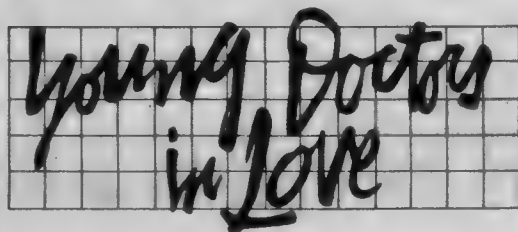 Young Doctors
in Love